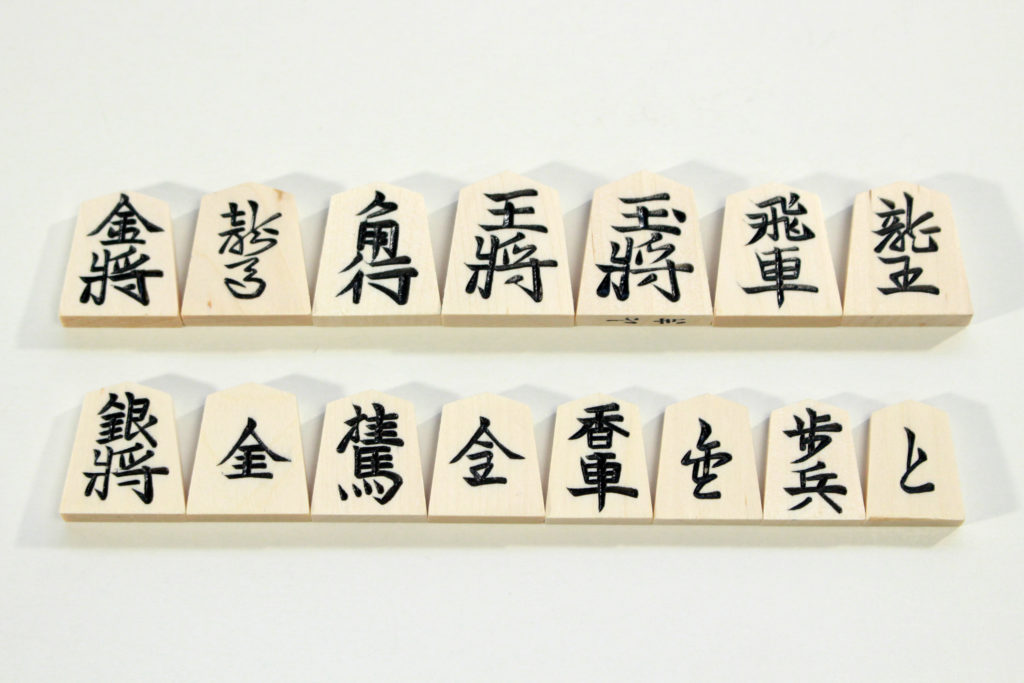 金將
龍馬
角行
王將
玉將
飛車
龍王
銀將
金
桂馬
全
香車
歩兵
と